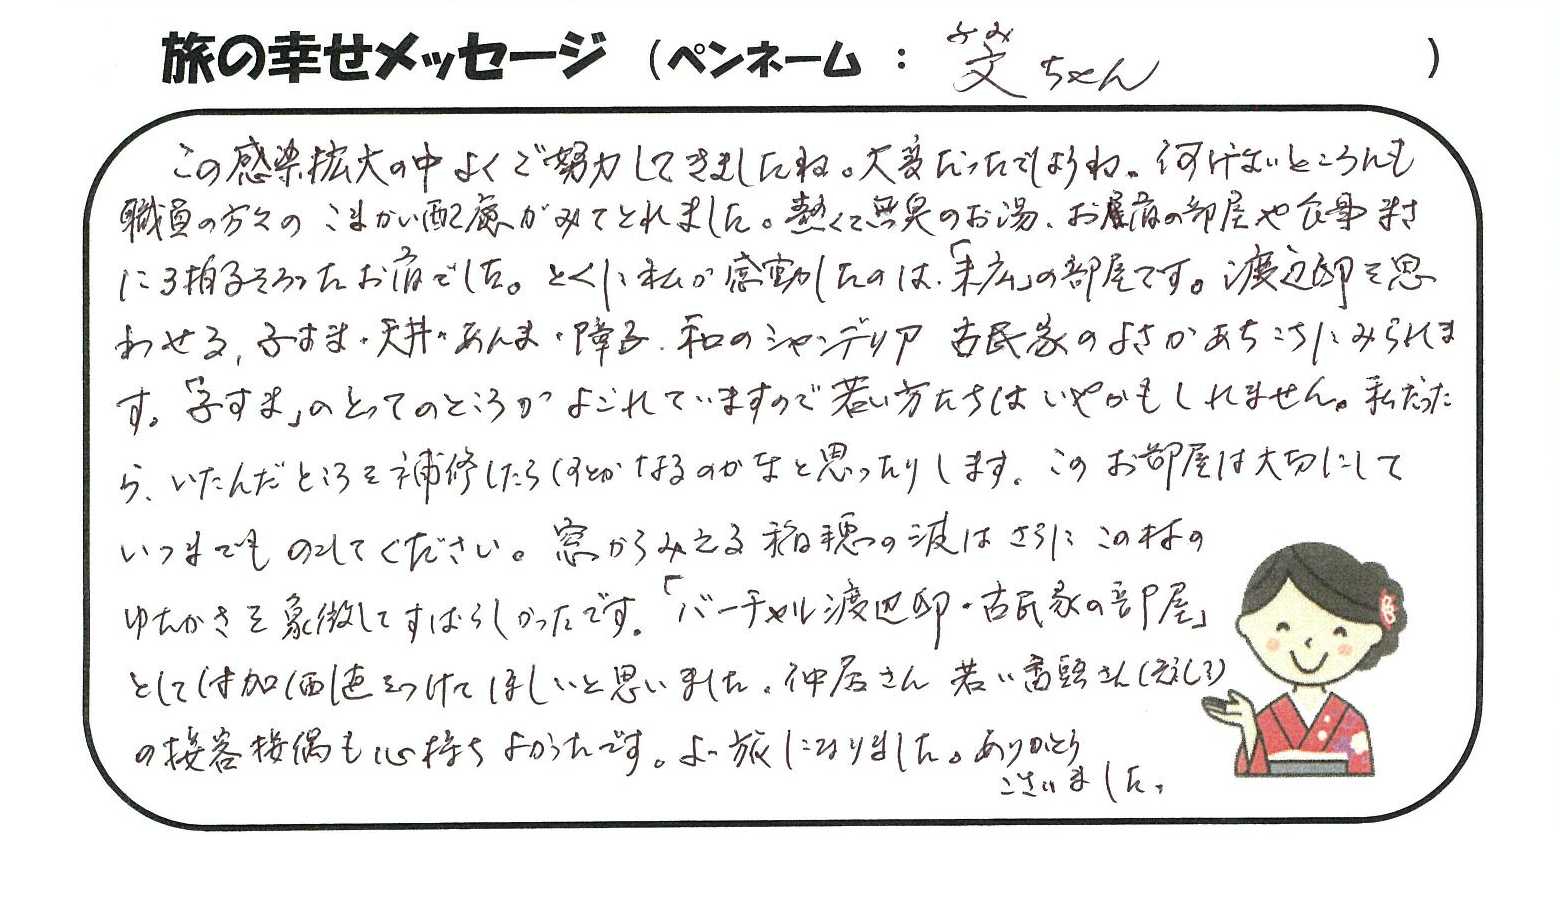 旅の幸せメッセージ (ペンネーム : 文ちゃん )
ふみ
この感染拡大の中よくご努力してきましたね。大変だったでしょうね。何げないところにも
職員の方々の こまかい配慮がみてとれました。熱くて無臭のお湯、お宿の部屋や食事まさ
に3拍子そろったお宿でした。とくに私が感動したのは、「末広」の部屋です。渡辺邸を思
わせる、子すま・天井・らんま・障子、和のシャンデリア 古民家のよさがあちこちにみられま
す。「子すま」のとってのところがよごれていますので若い方たちはいやかもしれません。私だった
ら、いたんだところを補修したらいくらくらいかかるのかなと思ったりします。このお部屋は大切にして
いつまでものこしてください。窓からみえる稲穂の波はさらにこの村の
ゆたかさを象徴してすばらしかったです。「バーチャル渡辺邸・古民家の部屋」
として付加価値をつけてほしいと思いました。仲居さん 若い番頭さん
の接客接偶も心持ちよかったです。よい旅になりました。ありがとう
ございました。